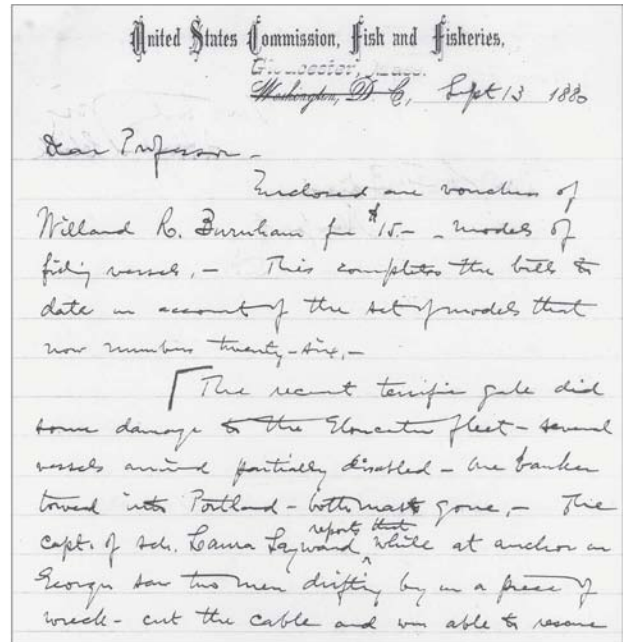 United States Commission, Fish and Fisheries,
Gloucester, Mass.
Washington, D. C., Sept 13 1880
Dear Professor -
Enclosed are vouchers of
Willard R. Burnham for $15 - - models of
fishing vessels, - This completes the bills to
date on account of the set of models that
now numbers twenty-six, -
The recent terrific gale did
some damage to the Gloucester fleet - several
vessels arrived partially disabled - one banker
towed into Portland - both masts gone, - The
reports that
capt. of sch. Laura Sayward, while at anchor on
Georges saw two men drifting by on a piece of
wreck - cut the cable and was able to rescue